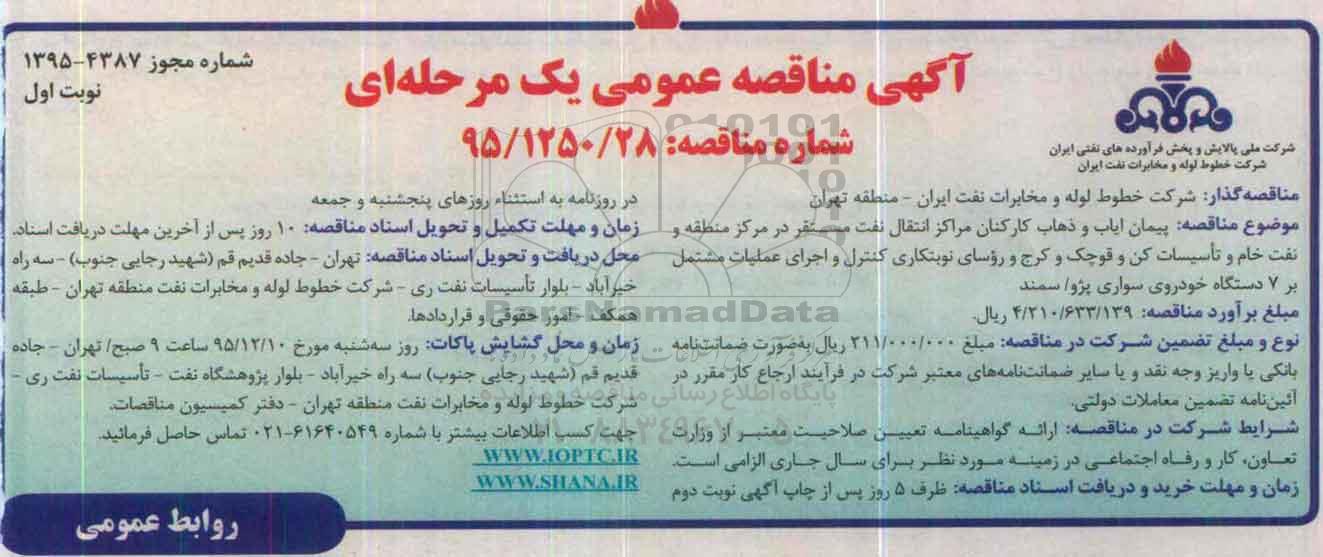 شماره مجوز ۴۳۸۷-۱۳۹۵
نوبت اول
آگهی مناقصه عمومی یک مرحله‌ای
شماره مناقصه: ۹۵/۱۲۵۰/۲۸
شرکت ملی پالایش و پخش فرآورده های نفتی ایران
شرکت خطوط لوله و مخابرات نفت ایران
مناقصه‌گذار: شرکت خطوط لوله و مخابرات نفت ایران - منطقه تهران
موضوع مناقصه: پیمان ایاب و ذهاب کارکنان مراکز انتقال نفت مستقر در مرکز منطقه و
نفت خام و تأسیسات کن و قوچک و کرج و رؤسای نوبتکاری کنترل و اجرای عملیات مشتمل
بر ۷ دستگاه خودروی سواری پژو/ سمند
مبلغ برآورد مناقصه: ۴/۲۱۰/۶۳۳/۱۳۹ ریال.
نوع و مبلغ تضمین شرکت در مناقصه: مبلغ ۲۱۱/۰۰۰/۰۰۰ ریال به‌صورت ضمانت‌نامه
بانکی یا واریز وجه نقد و یا سایر ضمانت‌نامه‌های معتبر شرکت در فرآیند ارجاع کار مقرر در
آئین‌نامه تضمین معاملات دولتی.
شرایط شرکت در مناقصه: ارائه گواهینامه تعیین صلاحیت معتبر از وزارت
تعاون، کار و رفاه اجتماعی در زمینه مورد نظر برای سال جاری الزامی است.
زمان و مهلت خرید و دریافت اسناد مناقصه: ظرف ۵ روز پس از چاپ آگهی نوبت دوم
در روزنامه به استثناء روزهای پنجشنبه و جمعه
زمان و مهلت تکمیل و تحویل اسناد مناقصه: ۱۰ روز پس از آخرین مهلت دریافت اسناد.
محل دریافت و تحویل اسناد مناقصه: تهران - جاده قدیم قم (شهید رجایی جنوب) - سه راه
خیرآباد - بلوار تأسیسات نفت ری - شرکت خطوط لوله و مخابرات نفت منطقه تهران - طبقه
همکف - امور حقوقی و قراردادها.
زمان و محل گشایش پاکات: روز سه‌شنبه مورخ ۹۵/۱۲/۱۰ ساعت ۹ صبح/ تهران - جاده
قدیم قم (شهید رجایی جنوب) سه راه خیرآباد - بلوار پژوهشگاه نفت - تأسیسات نفت ری -
شرکت خطوط لوله و مخابرات نفت منطقه تهران - دفتر کمیسیون مناقصات.
جهت کسب اطلاعات بیشتر با شماره ۶۱۶۴۰۵۴۹-۰۲۱ تماس حاصل فرمائید.
WWW.IOPTC.IR
WWW.SHANA.IR
روابط عمومی
ParsNamadData
پایگاه اطلاع رسانی مناقصه و مزایده